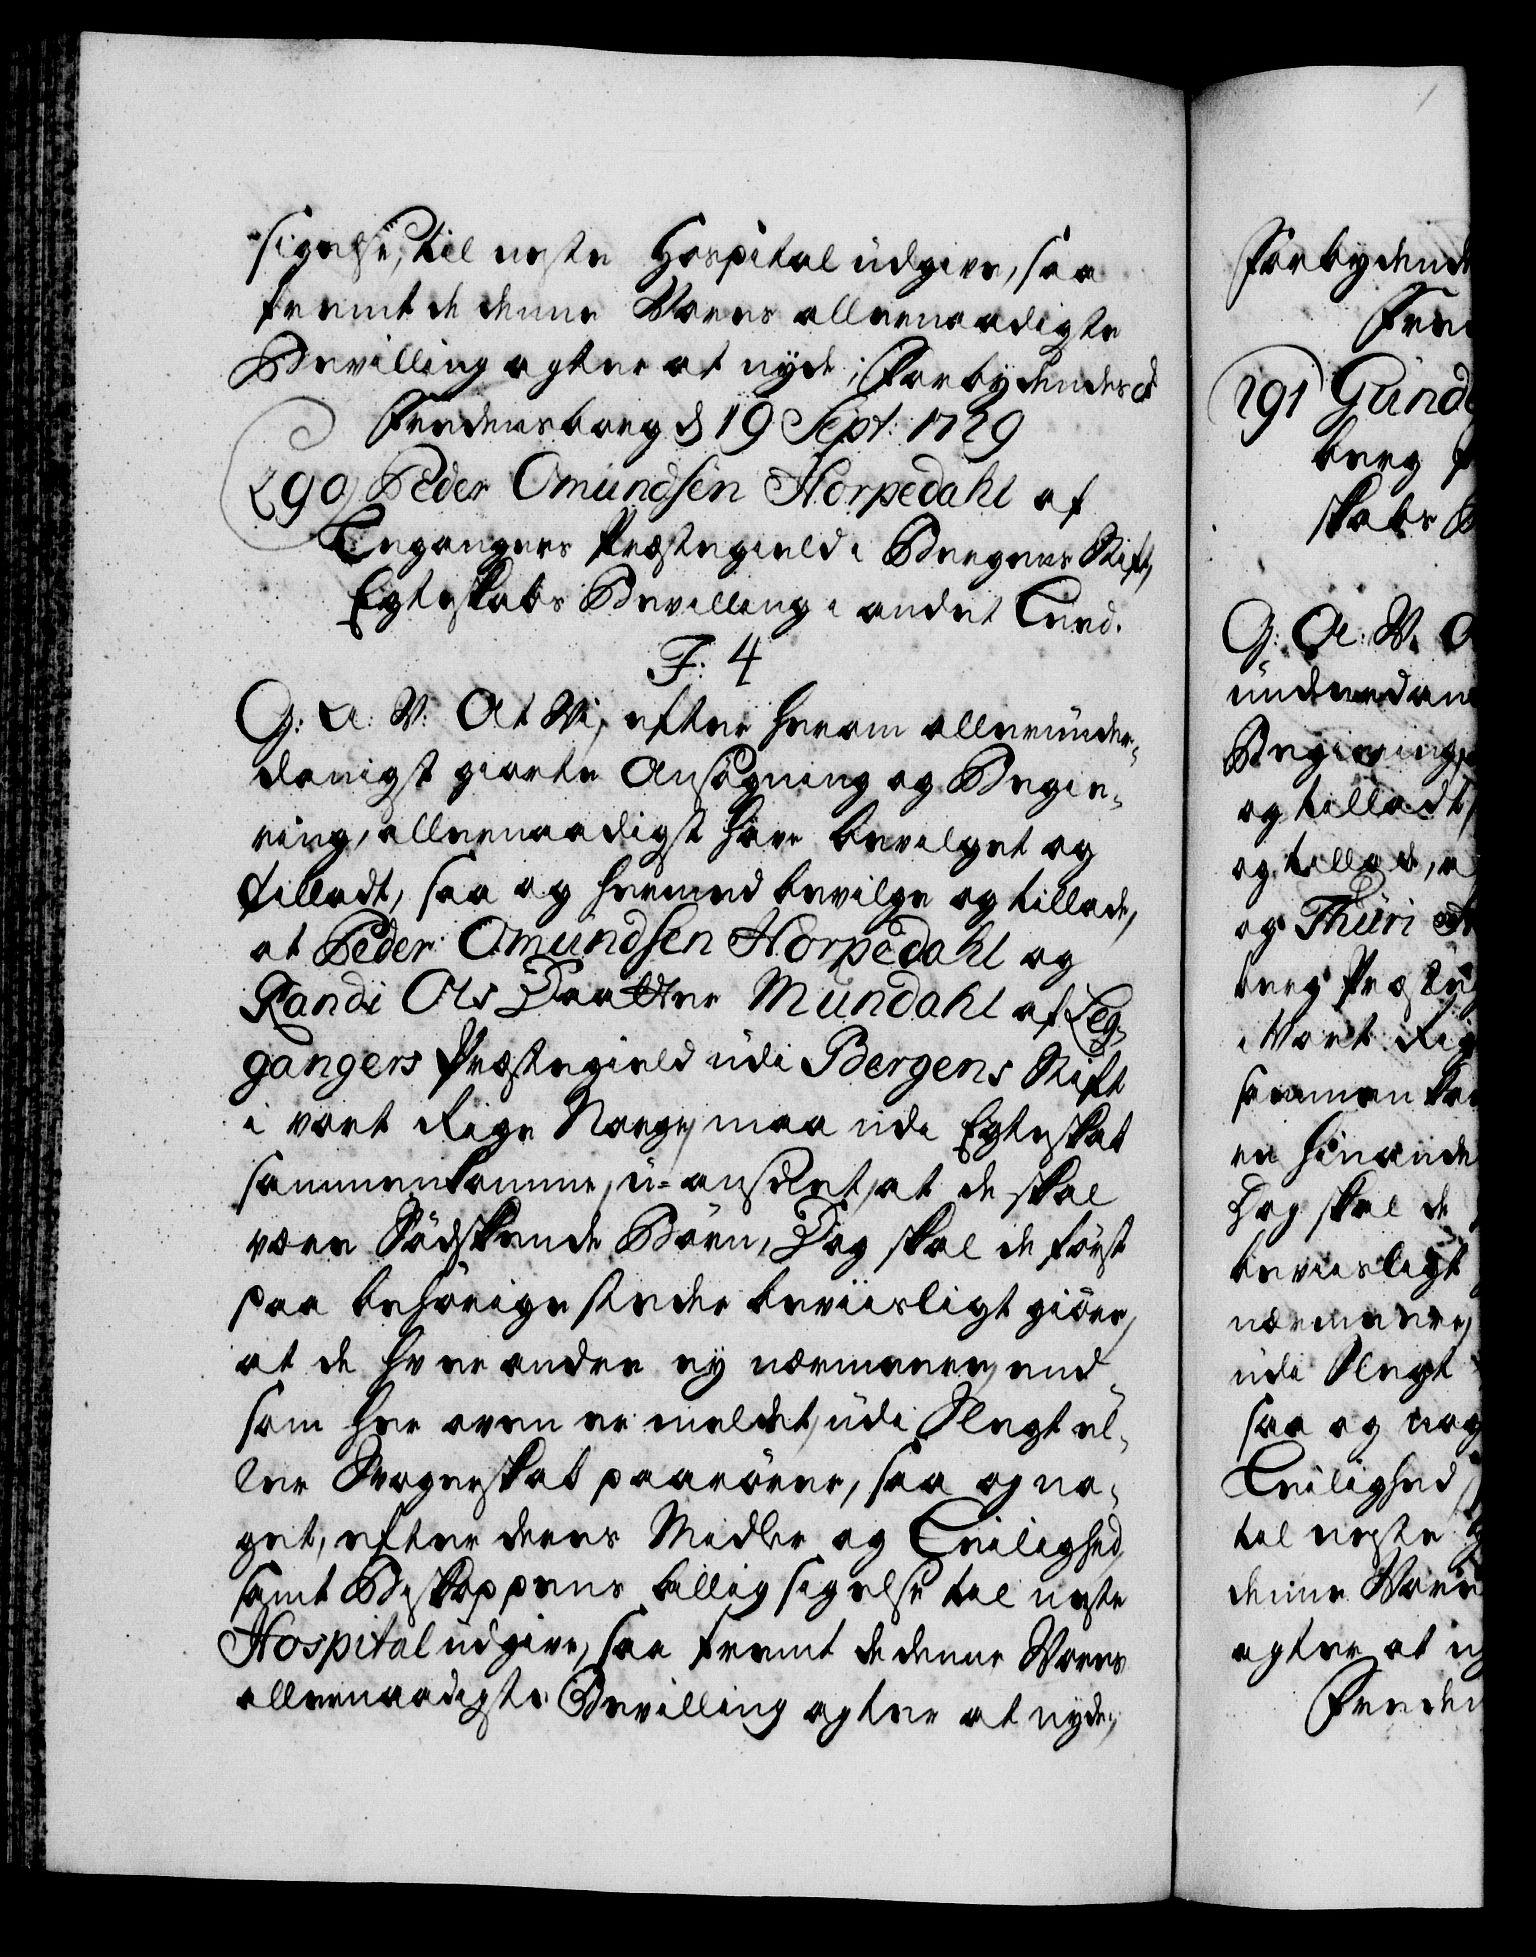 sigelse, til neste Hospital udgive, saa
fremt de denne Vores allernaadigste
Bevilling agter at nyde; Forbydendes &
Fredensborg d 19 Sept: 1729
290) Peder Omundsen Norpedahl af
Legangers Præstegield i Bergens Stift,
Egteskabs Bevilling i andet Leed.
F: 4
G: A: V: At Vi, efter herom allerunder-
danigst giorte Ansøgning og Begie-
ring, allernaadigst have bevilget og
tilladt, saa og hermed bevilge og tillade,
at Peder Omundsen Norpedahl og
Randi Ols Daatter Mundahl af Leg-
gangers Præstegield udi Bergens Stift
i vort Rige Norge, maa udi Egteskab
sammenkomme, u-anseet, at de skal
være Sødskende Børn, Dog skal de først
paa behörige steder beviisligt giöre,
at de hverandre ey nærmere, end
som her oven er meldet, udi Slegt el-
ler Svogerskab paarörer, saa og no-
get, efter deres Midler og Leilighed,
samt Biskoppens billig sigelse til neste
Hospital udgive, saa fremt de denne Vores
allernaadigste Bevilling agter at nyde;
Forbydende
Fre
291) Gund
berg
skabs B
G: A: V: A
underdan
Begiering,
og tilladt,
og tillade, a
og Thuri
berg Præste
i Vort Rig
sammen kom
er hinande
Dog skal de
beviisligt
nærmere,
udi Slegt
saa og nog
Leilighed,
til neste
denne Vore
agter at n
Freden